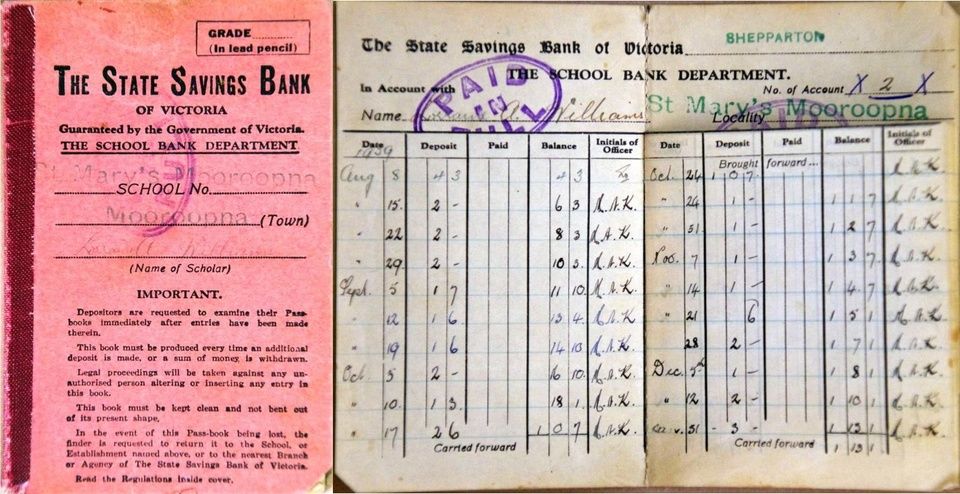 GRADE
(In lead pencil)
THE STATE SAVINGS BANK
OF VICTORIA
Guaranteed by the Government of Victoria.
THE SCHOOL BANK DEPARTMENT
St Mary's Mooroopna
SCHOOL No.
Mooroopna (Town)
(Name of Scholar)
IMPORTANT.
Depositors are requested to examine their Pass-
books immediately after entries have been made
therein.
This book must be produced every time an additional
deposit is made, or a sum of money is withdrawn.
Legal proceedings will be taken against any un-
authorised person altering or inserting any entry in
this book.
This book must be kept clean and not bent out
of its present shape.
In the event of this Pass-book being lost, the
finder is requested to return it to the School, or
Establishment named above, or to the nearest Branch
or Agency of The State Savings Bank of Victoria.
Read the Regulations inside cover.
The State Savings Bank of Victoria SHEPPARTON
THE SCHOOL BANK DEPARTMENT.
In Account with No. of Account X 2 X
PAID IN FULL
Name A. Williams Locality St Mary's Mooroopna
Date Deposit Paid Balance Initials of Officer
1939
Aug 8 4 3 4 3
" 15 2 - 6 3 M.A.K.
" 22 2 - 8 3 M.A.K.
" 29 2 - 10 3 M.A.K.
Sept. 5 1 7 11 10 M.A.K.
" 12 1 6 13 4 M.A.K.
" 19 1 6 14 10 M.A.K.
Oct. 3 2 - 16 10 M.A.K.
" 10 1 3 18 1 M.A.K.
" 17 2 6 1 0 7 M.A.K.
Carried forward
Date Deposit Paid Balance Initials of Officer
Brought forward...
Oct. 24 1 0 7 M.A.K.
" 24 1 - 1 1 7 M.A.K.
" 31 1 - 1 2 7 M.A.K.
Nov. 7 1 - 1 3 7 M.A.K.
" 14 1 - 1 4 7 M.A.K.
" 21 6 1 5 1 M.A.K.
" 28 2 - 1 7 1 M.A.K.
Dec. 5th 1 - 1 8 1 M.A.K.
" 12 2 - 1 10 1 M.A.K.
31 - 3 - 1 13 1 M.A.K.
Carried forward 1 13 1